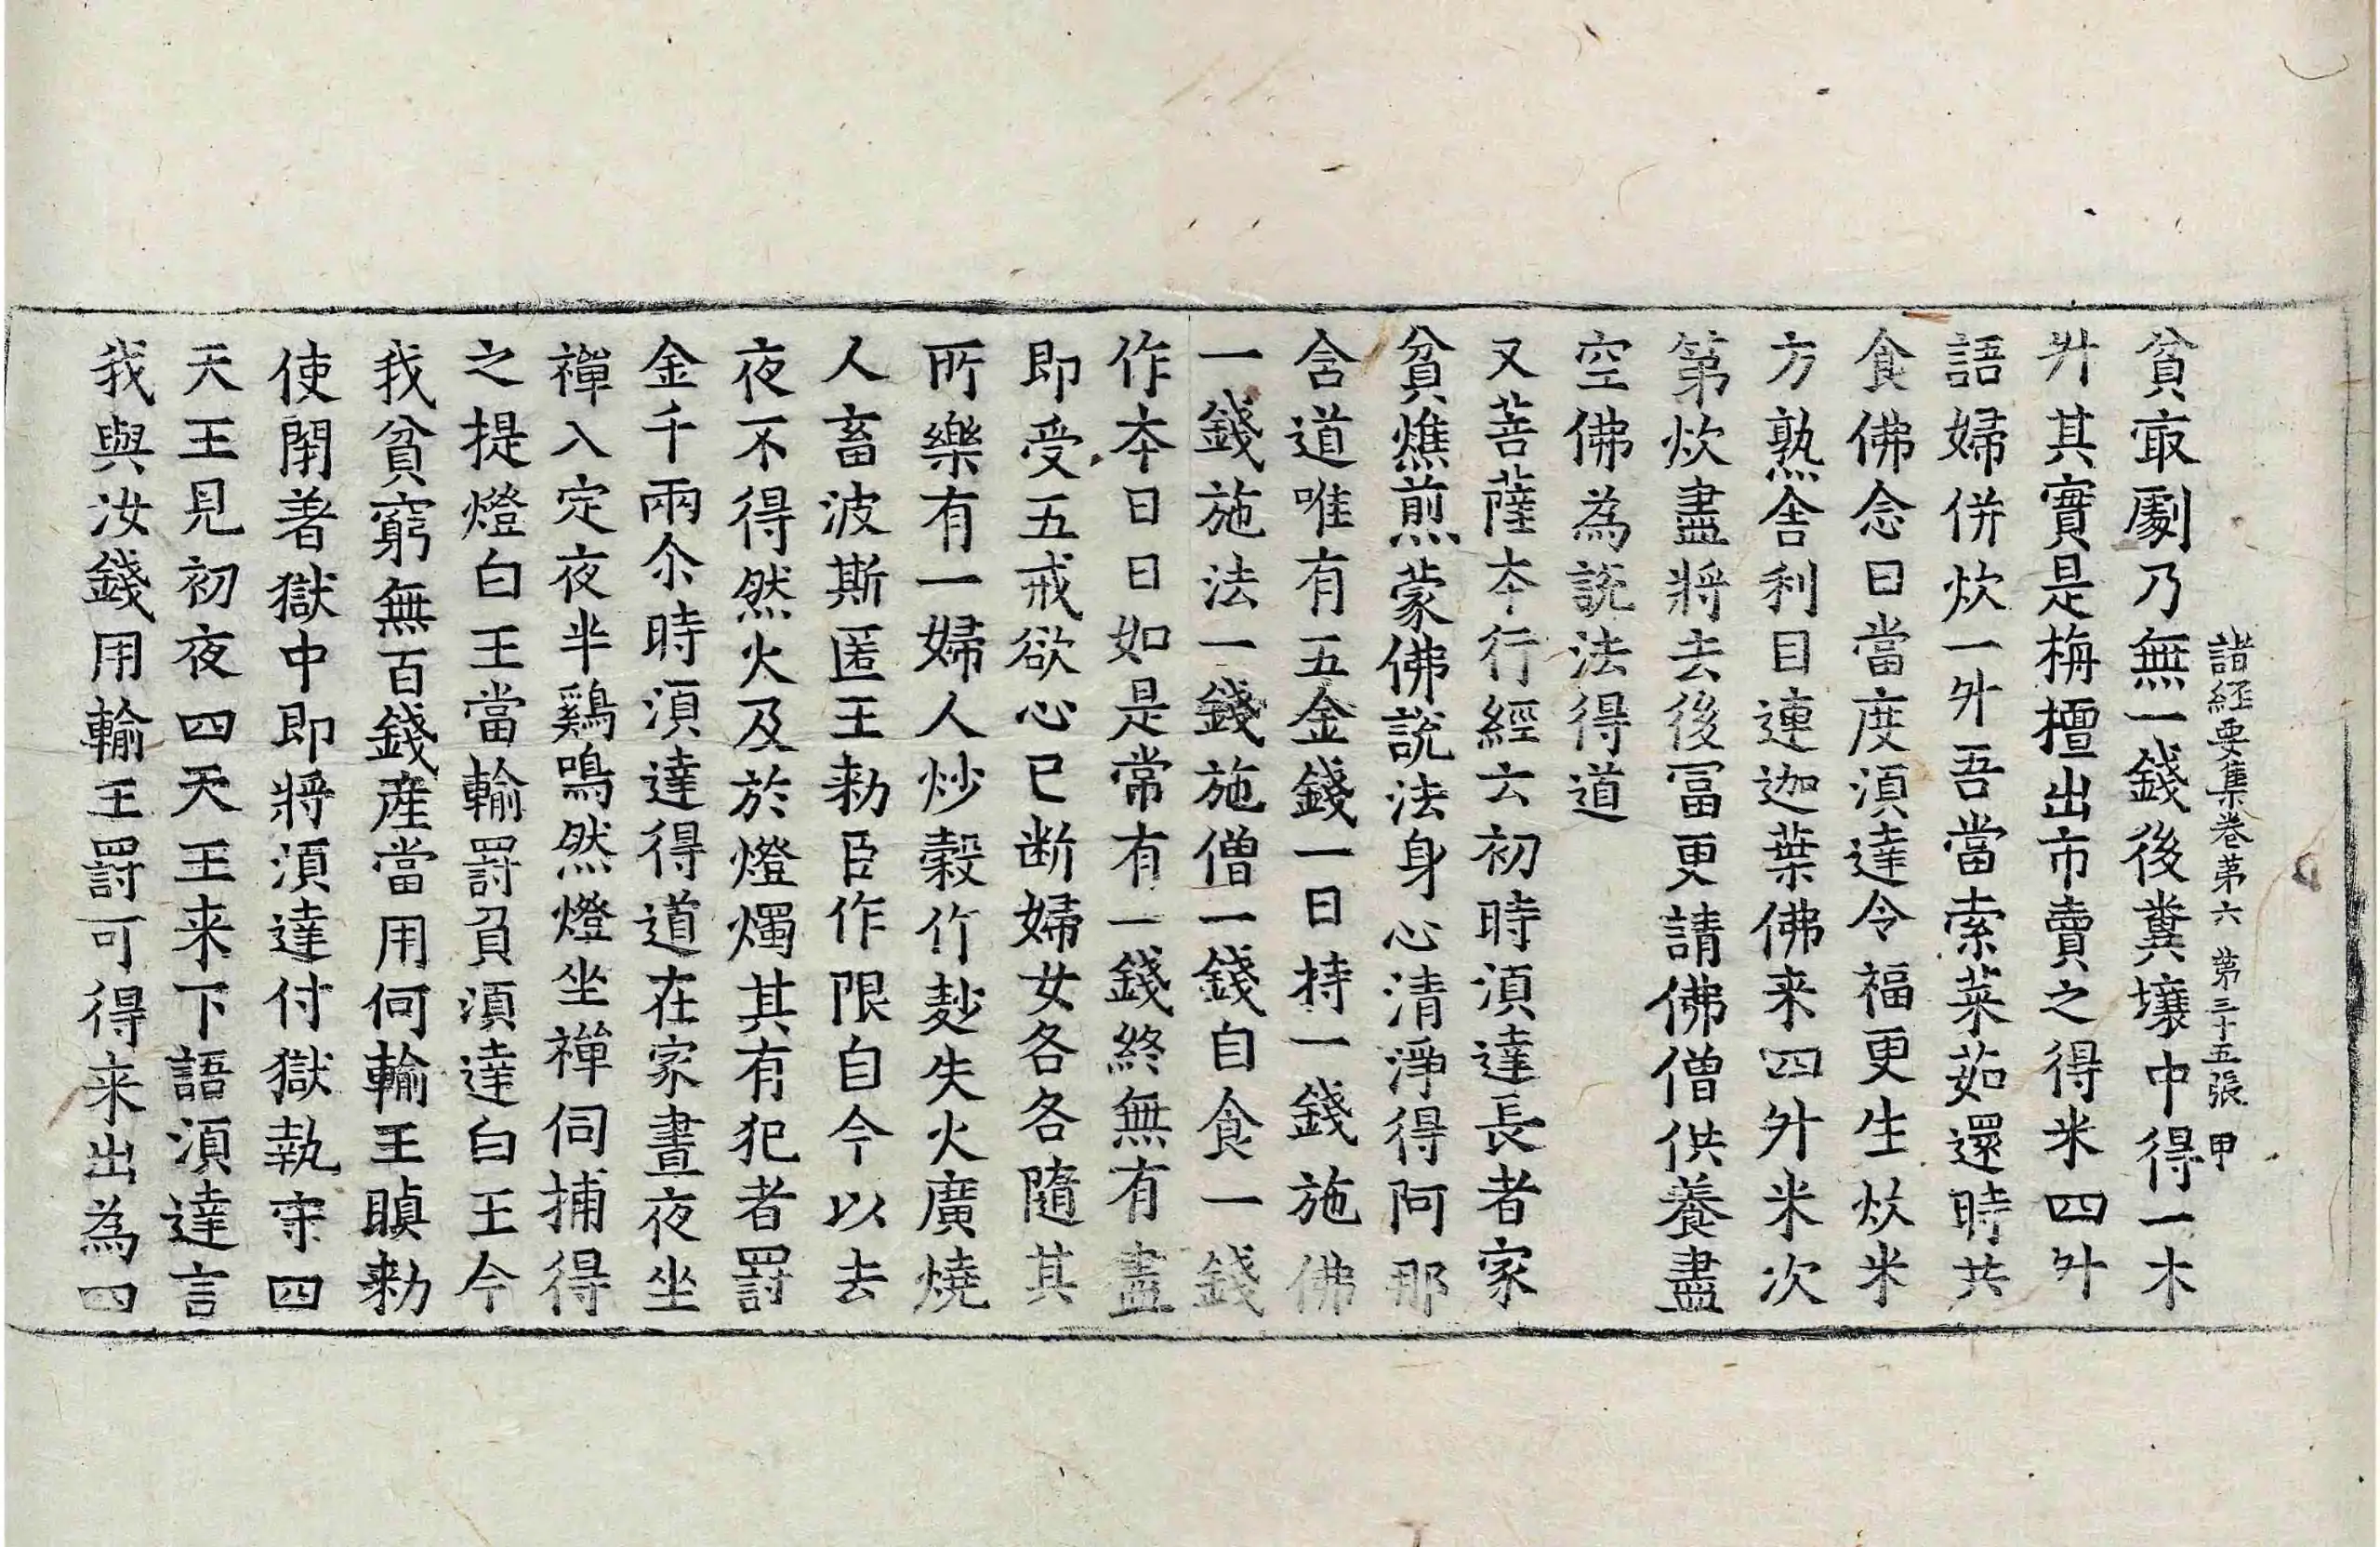 諸經要集卷第六 第三十五張 甲
貧㝡劇乃無一錢後糞壤中得一木
升其實是栴檀出市賣之得米四升
語婦併炊一升吾當索菜茹還時共
食佛念曰當度湏達令福更生炊米
方熟舍利目連迦葉佛来四升米次
第炊盡將去後冨更請佛僧供養盡
空佛為説法得道
又菩薩夲行經云初時湏達長者家
貧燋煎蒙佛說法身心清淨得阿那
含道唯有五金錢一日持一錢施佛
一錢施法一錢施僧一錢自食一錢
作夲日日如是常有一錢終無有盡
即受五戒欲心已断婦女各各隨其
所樂有一婦人炒穀作麨失火廣燒
人畜波斯匿王勑臣作限自今以去
夜不得然火及於燈燭其有犯者罰
金千兩尒時湏達得道在家晝夜坐
禪入定夜半鷄鳴然燈坐禪伺捕得
之提燈白王當輸罰負湏達白王今
我貧窮無百錢産當用何輸王瞋勑
使閇著獄中即將湏達付獄執守四
天王見初夜四天王来下語湏達言
我與汝錢用輸王罰可得来出為四